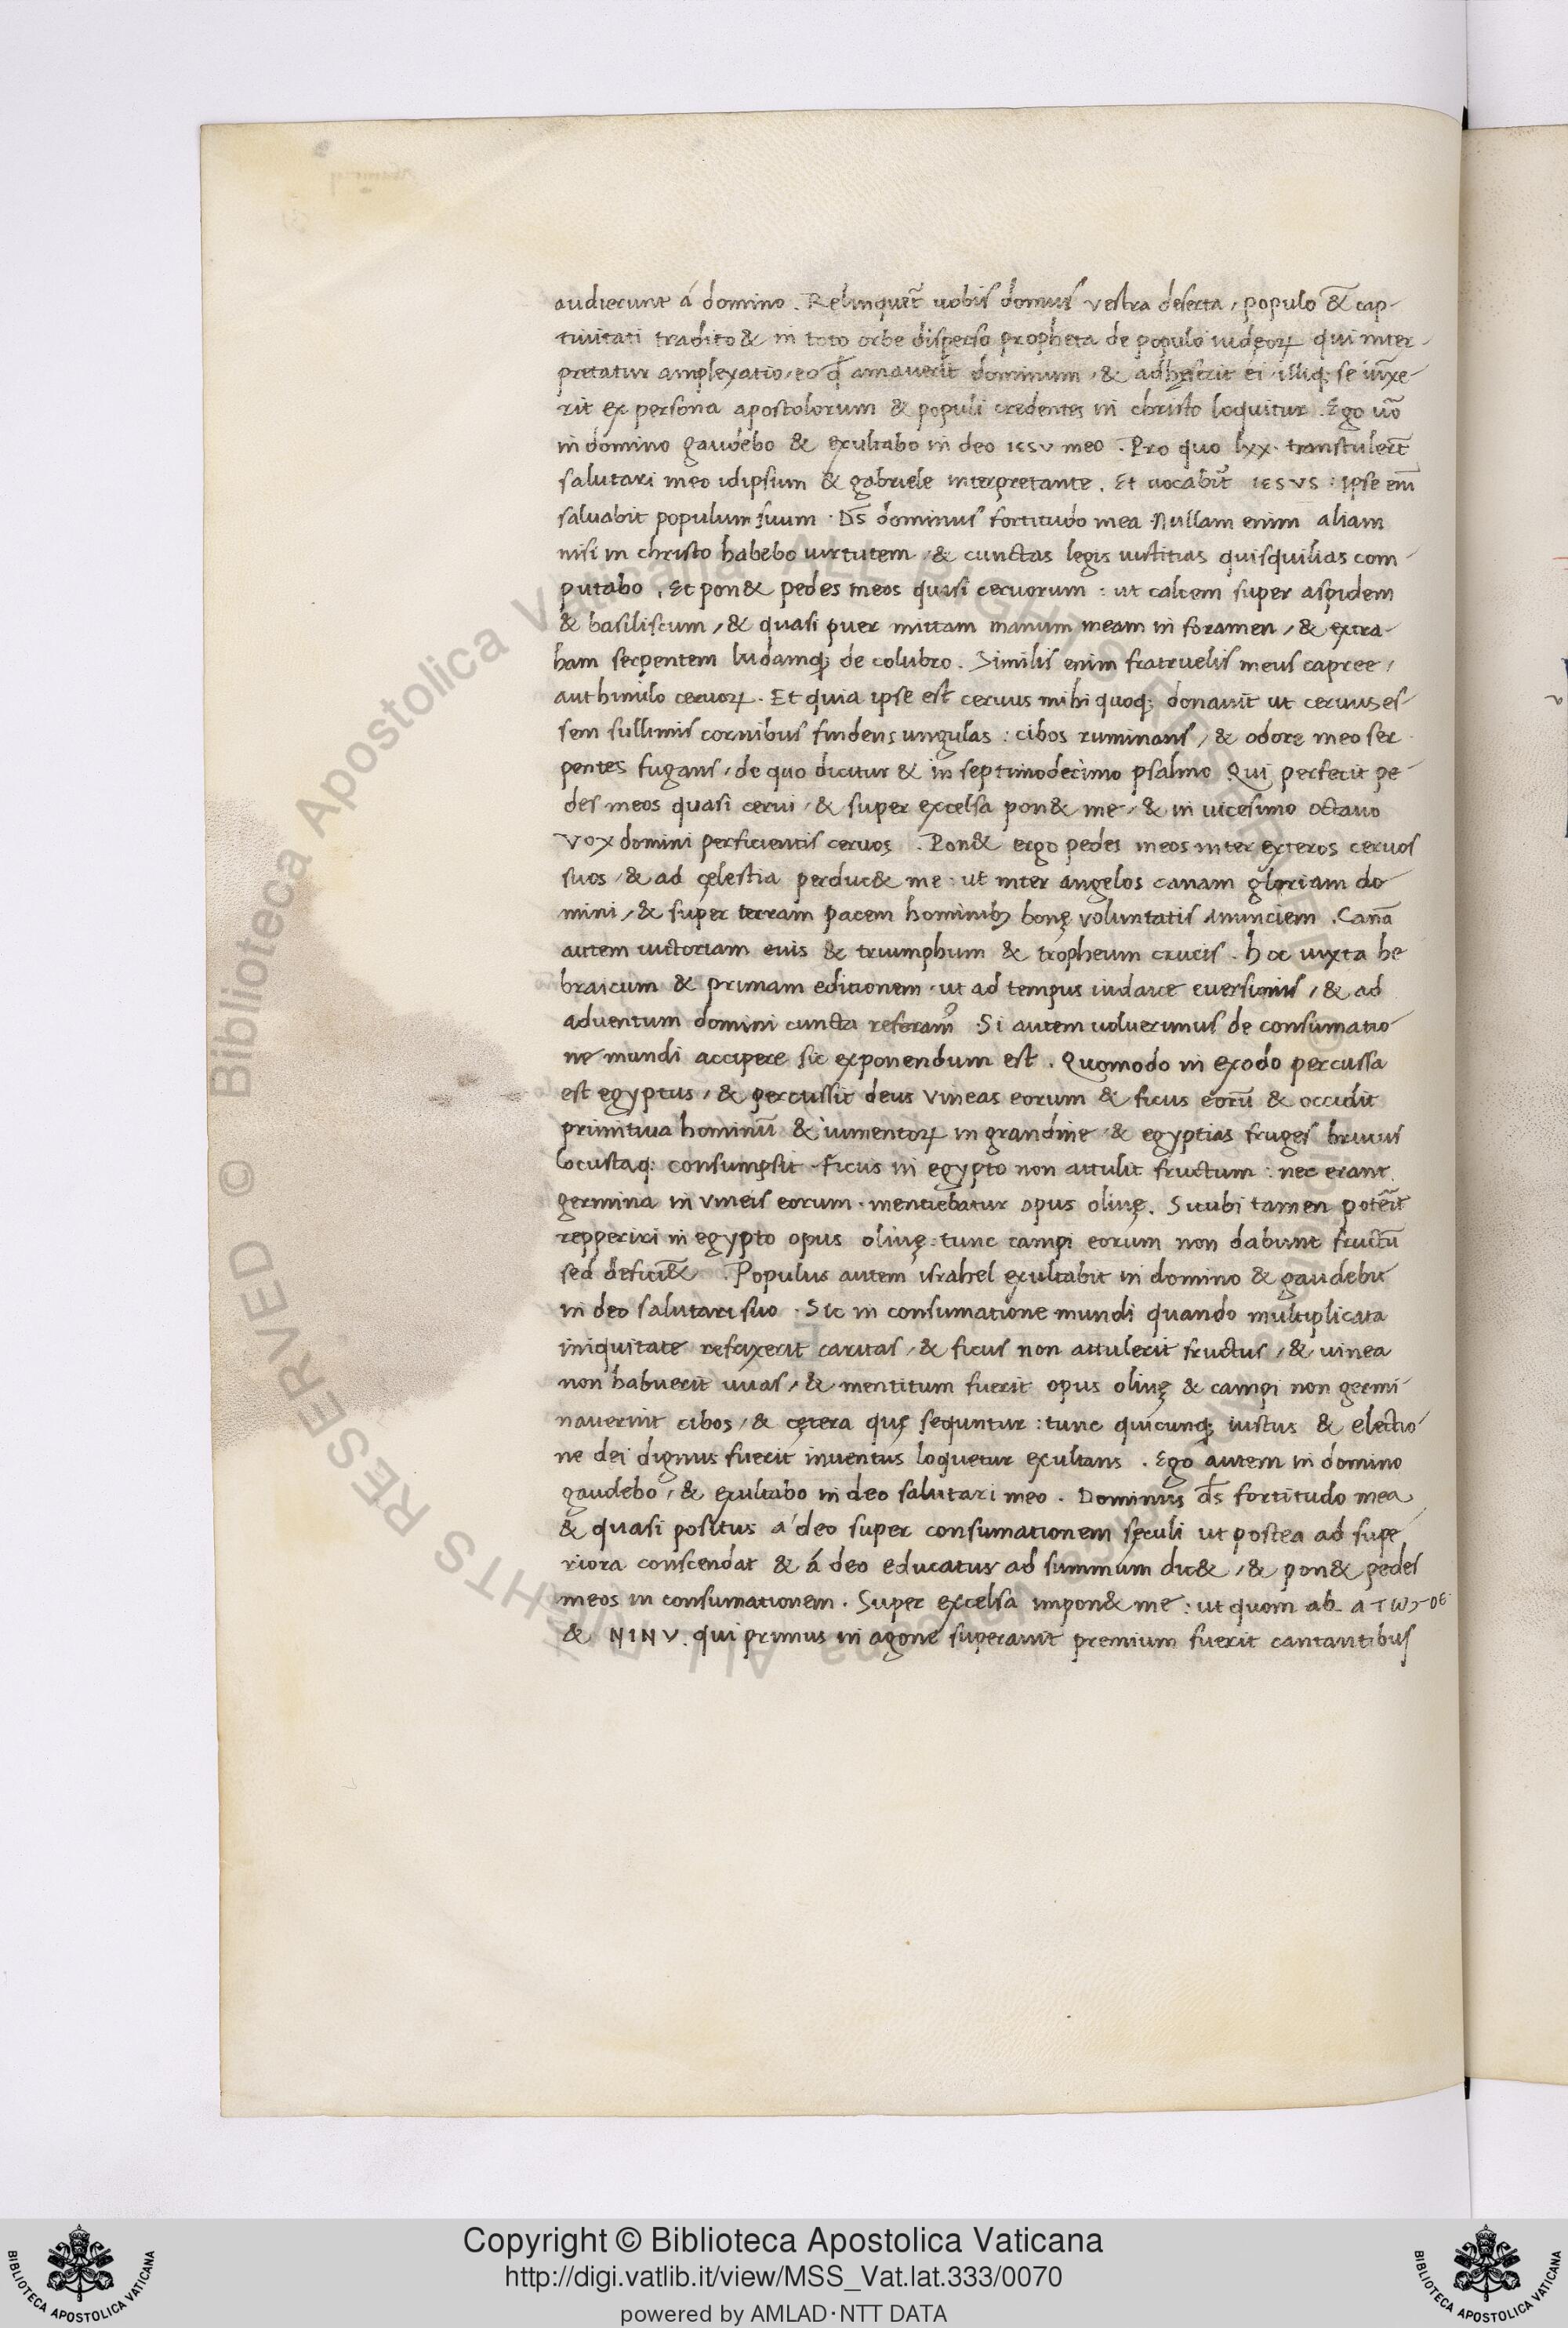 audierunt á domino. Relinquet̃ uobis domus vestra deserta, populo &̃ cap-
tiuitati tradito & in toto orbe disperso propheta de populo iudeoꝝ qui inter-
pretatur amplexatio, eo ꝙ amauerit dominum, & adhęserit ei, illiq; se iũxe-
rit ex persona apostolorum & populi credentes in christo loquitur. Ego uõ
in domino gaudebo & exultabo in deo IESV meo. Pro quo lxx. transtulert̃
salutari meo idipsum & gabriele interpretante. Et uocabit̃ IESVS: Ipse em̃
saluabit populum suum. Ds̃ dominus fortitudo mea Nullam enim aliam
nisi in christo habebo uirtutem, & cunctas legis iustitias quisquilias com-
putabo. Et pon& pedes meos quasi ceruorum: ut calcem super aspidem
& basiliscum, & quasi puer mittam manum meam in foramen, & extra-
ham serpentem ludamq; de colubro. Similis enim fratruelis meus capree,
aut hinulo ceruoꝝ. Et quia ipse est ceruus mihi quoq; donauit ut ceruus es-
sem sullimis cornibus findens ungulas: cibos ruminans, & odore meo ser-
pentes fugans, de quo dicitur & in septimodecimo psalmo Qui perfecit pe-
des meos quasi cerui, & super excelsa pon& me, & in uicesimo octauo
vox domini perficientis ceruos. Pon& ergo pedes meos inter exteros ceruos
suos, & ad cęlestia perduc& me: ut inter angelos canam gloriam do-
mini, & super terram pacem hominibꝫ bonę voluntatis Anunciem. Canã
autem uictoriam euis & triumphum & tropheum crucis. hoc iuxta he-
braicum & primam editionem, ut ad tempus iudaice euersionis, & ad
aduentum domini cuncta referam᷒ Si autem uoluerimus de consumatio-
ne mundi accipere sic exponendum est. Quomodo in exodo percussa
est egyptus, & percussit deus vineas eorum & ficus eorũ & occidit
primitiua hominũ & iumentoꝝ in grandine, & egyptias fruges bruius
locustaq; consumpsit. ficus in egypto non attulit fructum: nec erant
germina in vineis eorum. mentiebatur opus oliuę. Sicubi tamen potẽit
repperiri in egypto opus oliuę: tunc campi eorum non dabunt fructũ
sed defici&. Populus autem israhel exultabit in domino & gaudebit
in deo salutari suo. Sic in consumatione mundi quando multiplicata
iniquitate refrixerit caritas, & ficus non attulerit fructus, & uinea
non habuerit uuas, & mentitum fuerit opus oliuę & campi non germi-
nauerint cibos, & cętera quę sequntur: tunc quicunq; iustus & electio-
ne dei dignus fuerit inuentus loquetur exultans. Ego autem in domino
gaudebo, & exultabo in deo salutari meo. Dominus ds̃ fortitudo mea
& quasi positus a deo super consumationem sęculi ut postea ad supe-
riora conscendat & á deo educatus ad summum dic&, & pon& pedes
meos in consumationem. Super excelsa impon& me: ut quom ab
& NINV. qui primus in agone superauit premium fuerit cantantibus
Copyright © Biblioteca Apostolica Vaticana
http://digi.vatlib.it/view/MSS_Vat.lat.333/0070
powered by AMLAD·NTT DATA
BIBLIOTECA APOSTOLICA VATICANA
BIBLIOTECA APOSTOLICA VATICANA
© Biblioteca Apostolica Vaticana ALL RIGHTS RESERVED